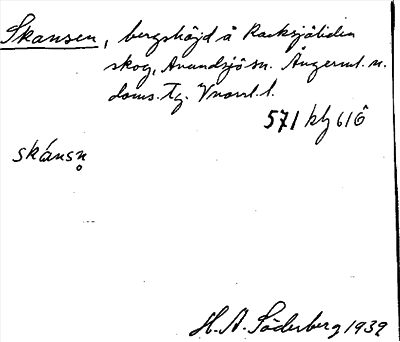 Skansen, bergshöjd å Racksjöliden
skog, Avandsjö sn. Ångerml. n.
doms. Tg. Vnorrl. l.
571 klj 61ô
skánsn̥
H. A. Söderberg 1939